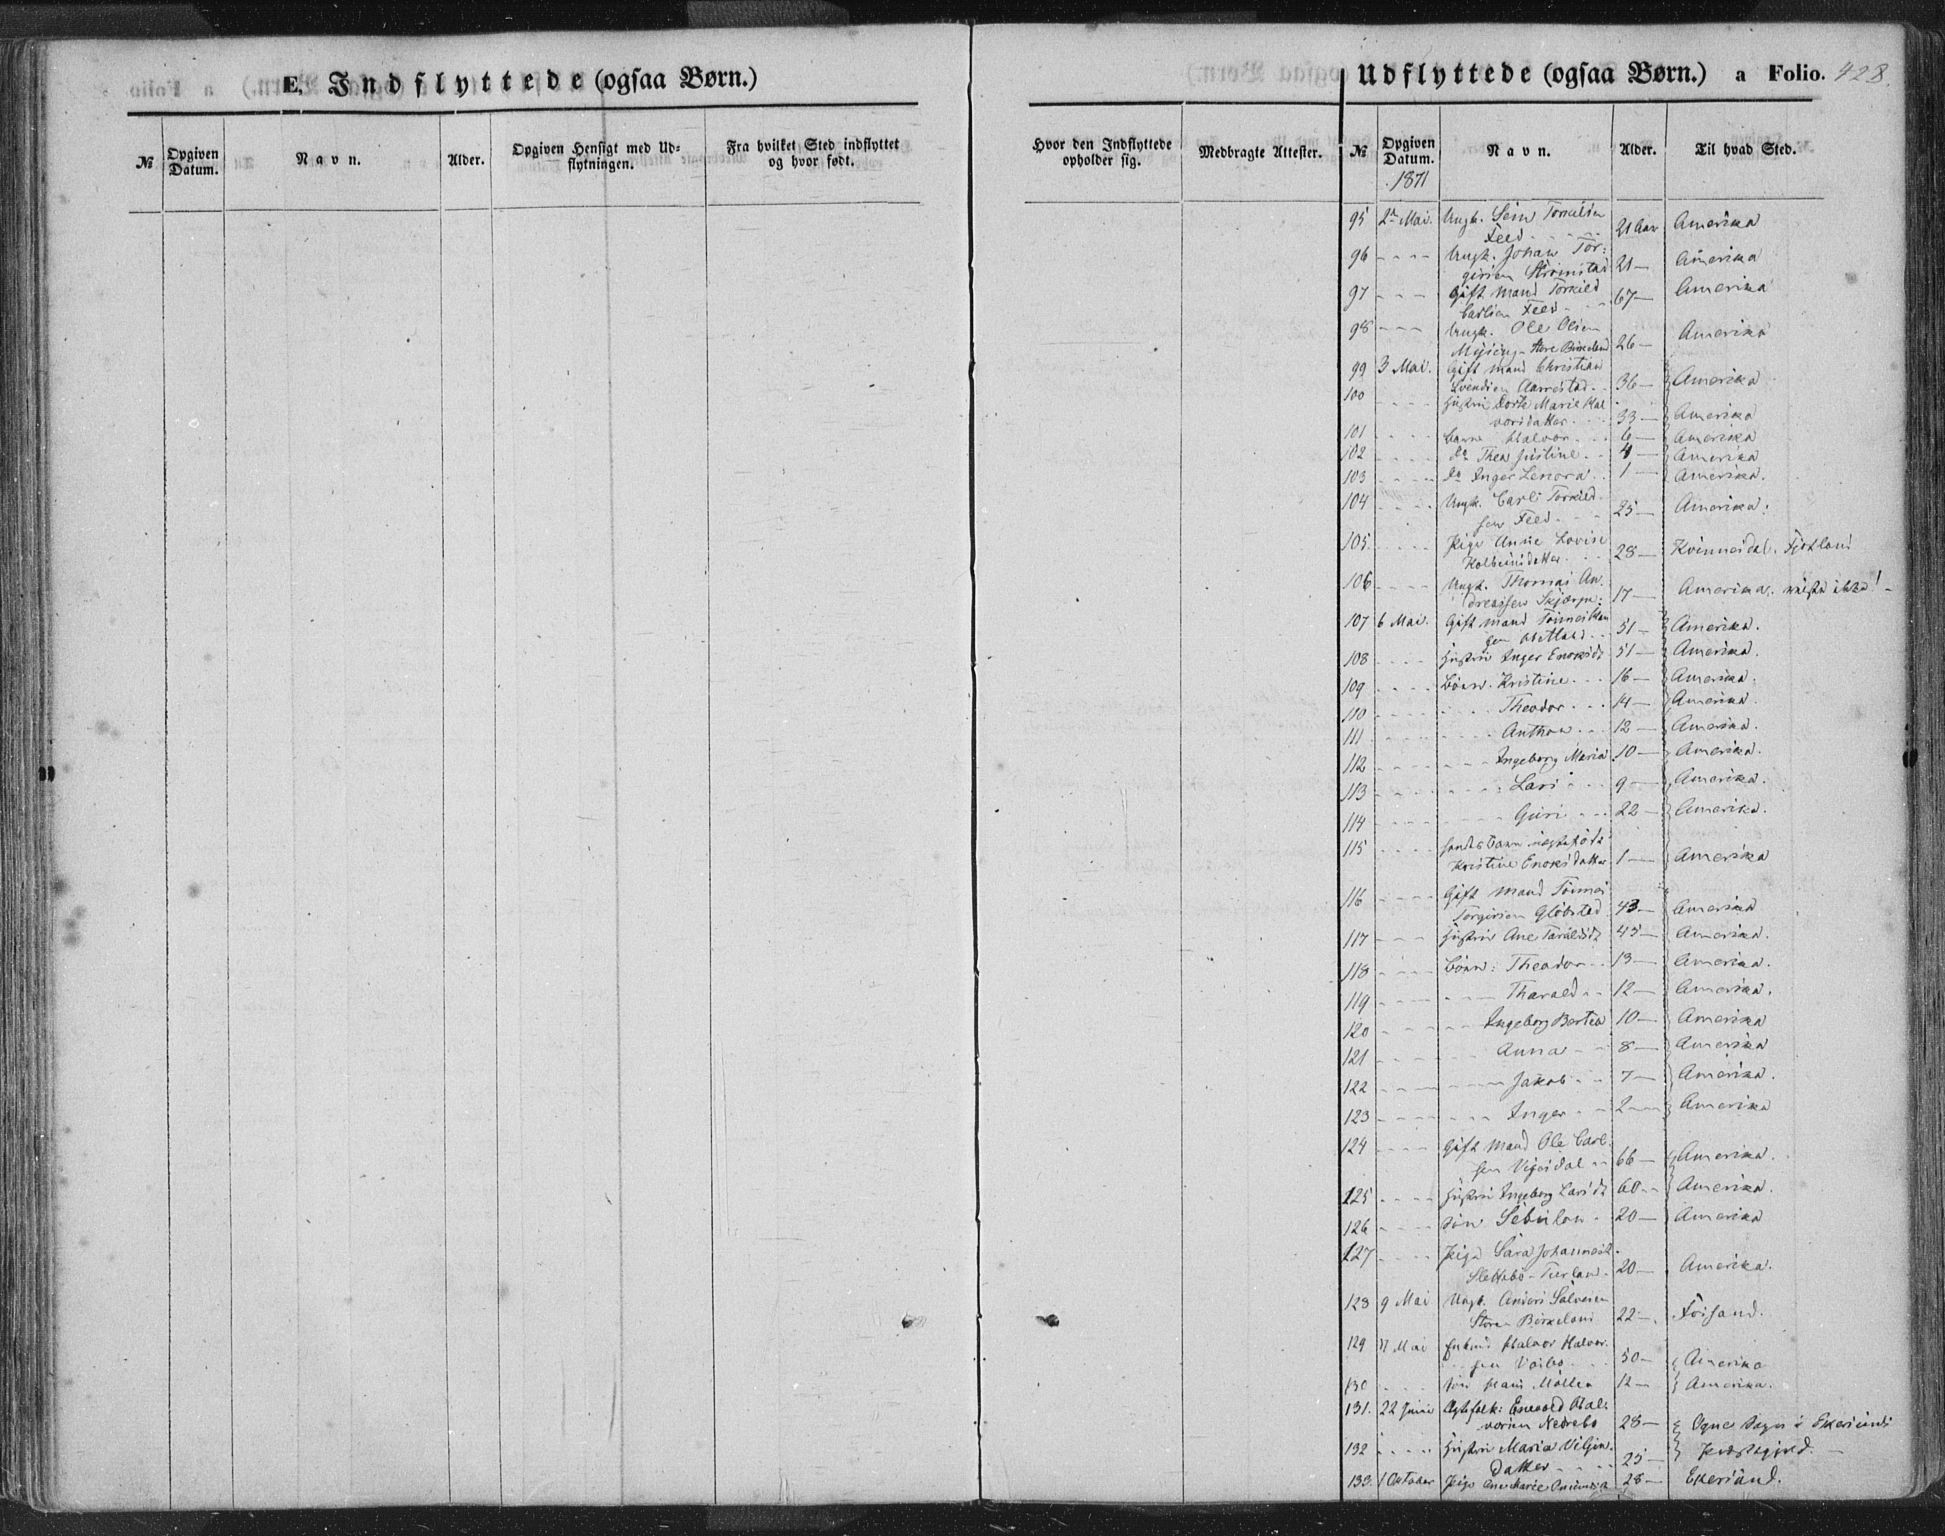 E. Indflyttede (ogsaa Børn.)
№ Opgiven Datum. Navn. Alder. Opgiven Hensigt med Udflytningen. Fra hvilket Sted indflyttet og hvor født.
Udflyttede (ogsaa Børn.) a Folio. 428.
Hvor den Indflyttede opholder sig. Medbragte Attester. № Opgiven Datum. Navn. Alder. Til hvad Sted.
1871
95 2n Mai. Ungk. Torkildsen
Feed 21 Aar Amerika
96 Ungk. Johan Tor-
21 — Amerika
97 Gift Mand Torkild
Feed 67 — Amerika
98 Ungk. Ole Olsen
Store Birkeland 26 — Amerika
99 3 Mai. Gift Mand Christian
Svendsen Aarrestad 36 — Amerika
100 Hustru Dorte Marie Hal
vorsdatter 33 — Amerika
101 Børn Halvor 6 — Amerika
102 do Thea Justine 4 — Amerika
103 do Inger Lenora 1 — Amerika.
104 Ungk. Carl Torkild
sen Feed 25 — Amerika.
105 Pige Anne Lovise
Kolbeinsdatter 28 — Kvinnesdal. Fjotland
106 Ungk. Thomas An
dreassen 17 — Amerika, reiste ikke!
107 6 Mai. Gift Mand Tønnes Han
sen 51 — Amerika.
108 Hustru Inger Enoksdt 51 — Amerika.
109 Børn. Kristine 16 — Amerika.
110 Theodor 14 — Amerika.
111 Anthon 12 — Amerika.
112 Ingeborg Maria 10 — Amerika.
113 Lars 9 — Amerika.
114 Guri 22 — Amerika.
115
Kristine Enoksdatter 1 — Amerika
116 Gift Mand Tønnes
Torgersen 43 — Amerika
117 Hustru Ane Taraldsdt 45 — Amerika.
118 Børn: Theodor 13 — Amerika.
119 Tharald 12 — Amerika.
120 Ingeborg Bertea 10 — Amerika
121 Anna 8 — Amerika
122 Jakob 7 — Amerika.
123 Inger 2 — Amerika
124 Gift Mand Ole Carl-
sen 66 — Amerika.
125 Hustru Ingeborg Larsdt 60 Amerika.
126 Søn Sebulon 20 — Amerika
127 Pige Sara Johannesdt
Slettebø 20 — Amerika.
128 9 Mai Ungk. Anders Salvesen
Store Birkeland 22 —
129 11 Mai Enkmd Halvor Halvor
sen 50 — Amerika
130 Søn Hans 12 — Amerika.
131. 22 Juni Ægtefolk: Enevald Hal-
vorsen Nedrebø 28 — Ogne Sogn i Ekersunds
132 Hustru Maria
Datter 25 — Præstegjeld. —
133. 1 Oktober Pige Ane Marie 28 — Ekersund.